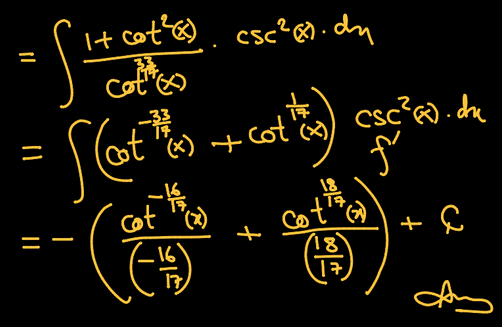 = ∫ (1 + cot²(x)) / (cot^(33/17)(x)) · csc²(x) · dx
= ∫ (cot^(-33/17)(x) + cot^(1/17)(x)) csc²(x) · dx
f'
= - ( cot^(-16/17)(x) / (-16/17) + cot^(18/17)(x) / (18/17) ) + C
Ans